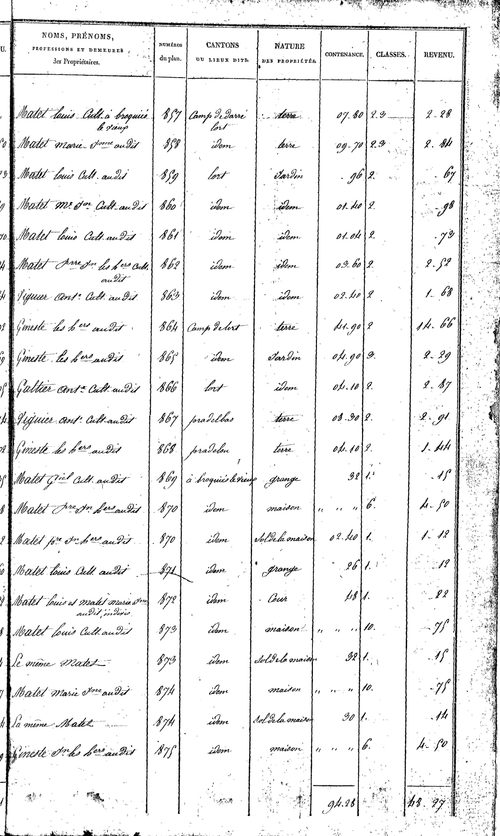 NOMS, PRÉNOMS, PROFESSIONS ET DEMEURES des Propriétaires. NUMÉROS du plan. CANTONS OU LIEUX DITS. NATURE DES PROPRIÉTÉS. CONTENANCE. CLASSES. REVENU.
Malet louis Cult. à broquiés le vieux 857 Camp de darré lort terre 07.80 2.3 2.28
Malet marie audit 858 idem terre 09.70 2.3 2.84
Malet louis Cult. audit 859 lort Jardin .96 2. 67
Malet Cult. audit 860 idem idem 01.40 2. .98
Malet louis Cult. audit 861 idem idem 01.04 2. .73
Malet les hers Cult. audit 862 idem idem 03.60 2. 2.52
Viguier ant. Cult. audit 863 idem idem 02.40 2. 1.68
Geneste les hers audit 864 Camp de lort terre 41.90 2 14.66
Geneste les hers audit 865 idem Jardin 04.90 3. 2.29
Galtier ant. Cult. audit 866 lort idem 04.10 2. 2.87
Viguier ant. Cult. audit 867 pradelbas terre 08.30 2. 2.91
Geneste les hers audit 868 terre 04.10 2. 1.44
Malet Cult. audit 869 à broquiés le vieux grange 32 1. .15
Malet hers audit 870 idem maison " " " 6. 4.50
Malet hers audit 870 idem Sol de la maison 02.40 1. 1.12
Malet louis Cult. audit 871 idem grange 26 1. .12
Malet louis et malet marie audit indivis 872 idem Cour 48 1. .22
Malet louis Cult. audit 873 idem maison " " " 10. .75
Le même Malet 873 idem Sol de la maison 32 1. .15
Malet marie audit 874 idem maison " " " 10. .75
La même Malet 874 idem Sol de la maison 30 1. .14
Geneste les hers audit 875 idem maison " " " 6. 4.50
94.28